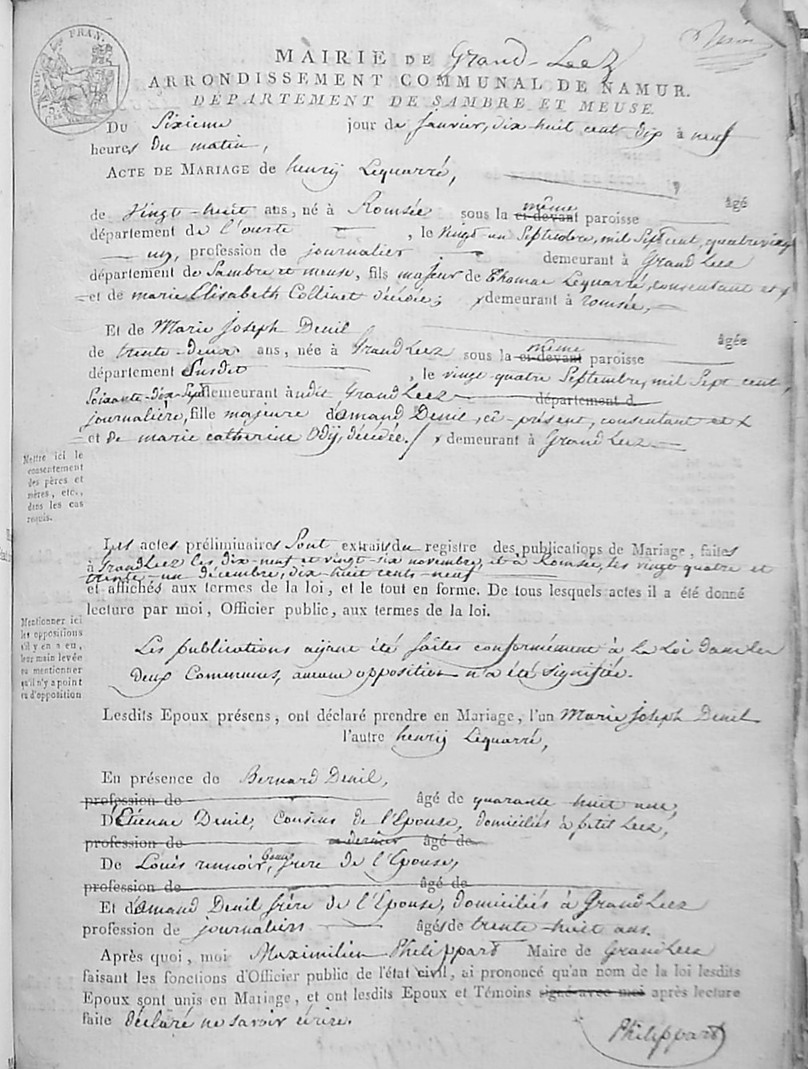 MAIRIE DE Grand-Leez
ARRONDISSEMENT COMMUNAL DE NAMUR.
DÉPARTEMENT DE SAMBRE ET MEUSE.
Du Sixieme jour de janvier, dix huit cent dix à neuf
heures du matin,
ACTE DE MARIAGE de henrÿ Lequarré,
âgé
de vingt-huit ans, né à Romsée sous la même ci-devant paroisse
département de l'ourte, le vingt un Septembre, mil Sept cent, quatrevingt
un, profession de journalier demeurant à Grand Leez
département de Sambre et meuse, fils majeur de Thomas Lequarré, consentant et
et de marie Elisabeth Collinet décédée; demeurant à romsée,
Et de Marie joseph Denil âgée
de trente-deux ans, née à Grand Leez sous la même ci-devant paroisse
département Susdit, le vingt quatre Septembre, mil Sept cent,
Soixante-dix-Sept demeurant àudit Grand Leez département d
journalière, fille majeure d'amand Denil, ci-présent, consentant et
et de marie catherine Odÿ, décédée. demeurant à Grand Leez
Mettre ici le
consentement
des pères et
mères, etc.,
dans les cas
requis.
Les actes préliminaires Sont extraits du registre des publications de Mariage, faites
à Grand Leez les dix-neuf et vingt-six novembre, et à Romsée, les vingt quatre et
trente-un décembre, dix-huit cents-neuf
et affichés aux termes de la loi, et le tout en forme. De tous lesquels actes il a été donné
lecture par moi, Officier public, aux termes de la loi.
Mentionner ici
les oppositions
s'il y en a eu,
leur main levée
ou mentionner
qu'il n'y a point
eu d'opposition
Les publications aÿant été faites conformément à la Loi dans les
deux Communes, aucune opposition n'a été signifiée.
Lesdits Epoux présens, ont déclaré prendre en Mariage, l'un Marie joseph Denil
l'autre henrÿ Lequarré,
En présence de Bernard Denil,
profession de âgé de quarante huit ans,
D'Etienne Denil, Cousins de l'Epouse, domiciliés à petit Leez,
profession de âgé de
De Louis rennoir, beau frere de l'Epouse,
profession de âgé de
Et d'amand Denil frère de l'Epouse, domiciliés à Grand Leez
profession de journaliers âgés de trente-huit ans.
Après quoi, moi Maximilien Philippart Maire de Grand Leez
faisant les fonctions d'Officier public de l'état civil, ai prononcé qu'au nom de la loi lesdits
Epoux sont unis en Mariage, et ont lesdits Epoux et Témoins signé avec moi après lecture
faite déclaré ne savoir écrire.
Philippart